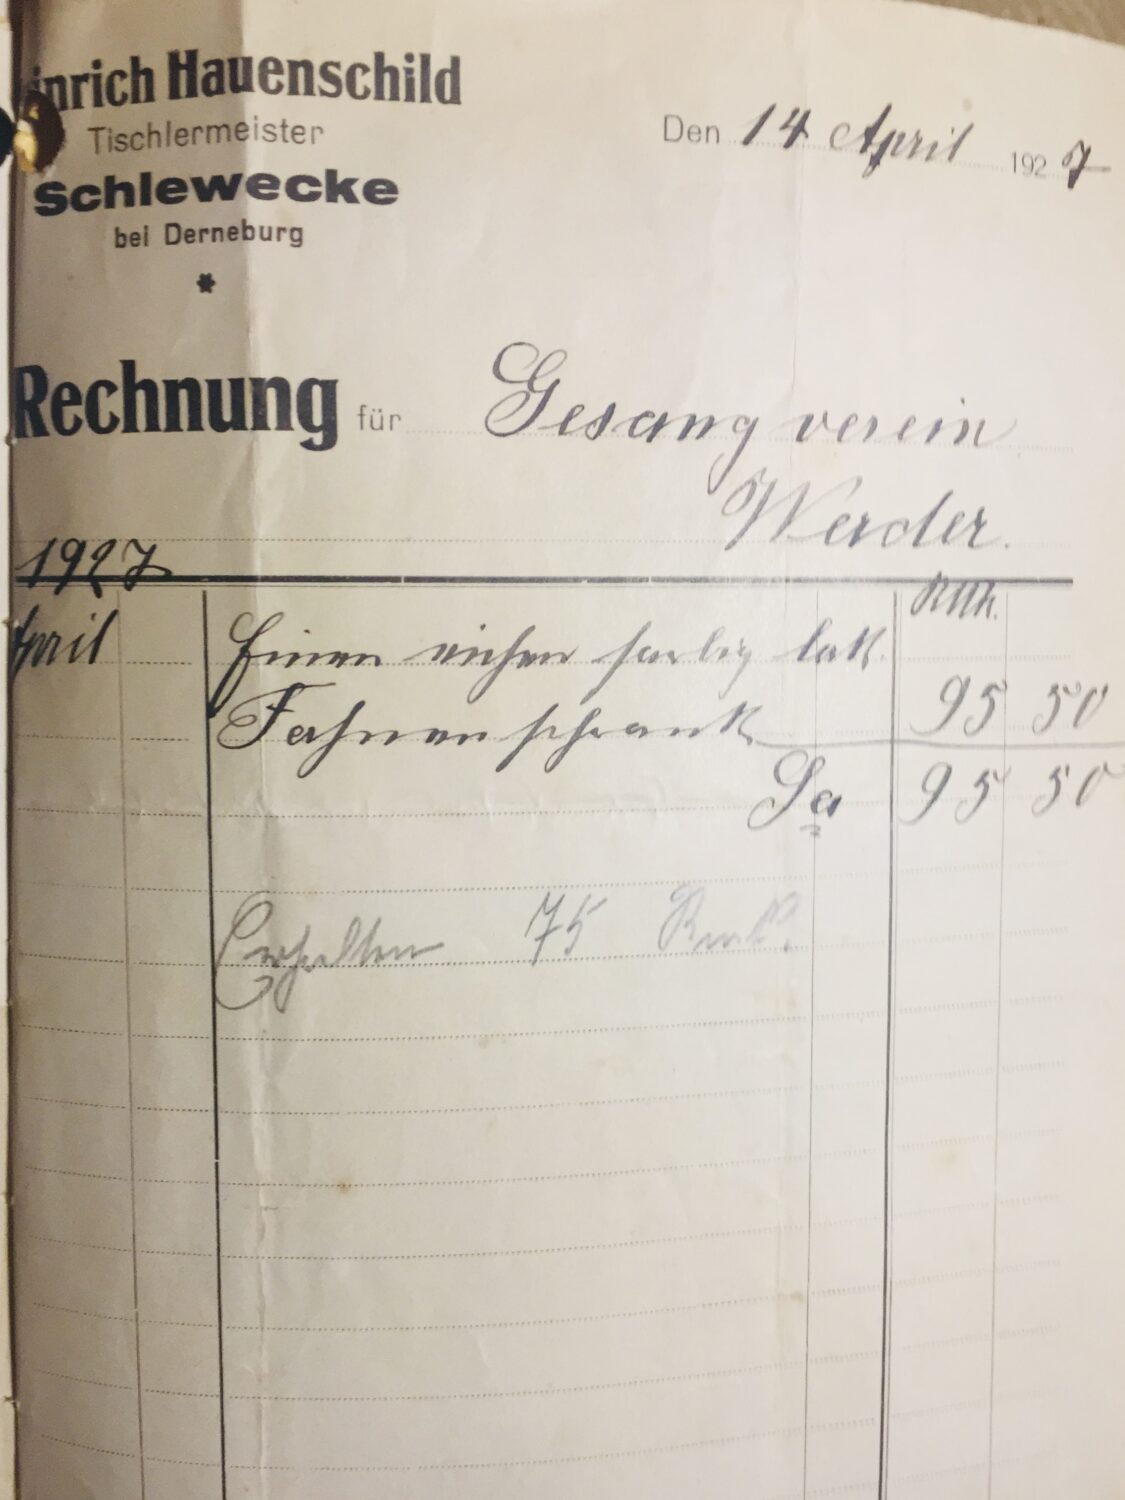 inrich Hauenschild
Tischlermeister
Schlewecke
bei Derneburg
Den 14 April 1927
Rechnung für Gesangverein
Werder.
1927
RMk.
April Einen eichen farbig lack.
Fahnenschrank 95 50
Sa 95 50
Erhalten 75